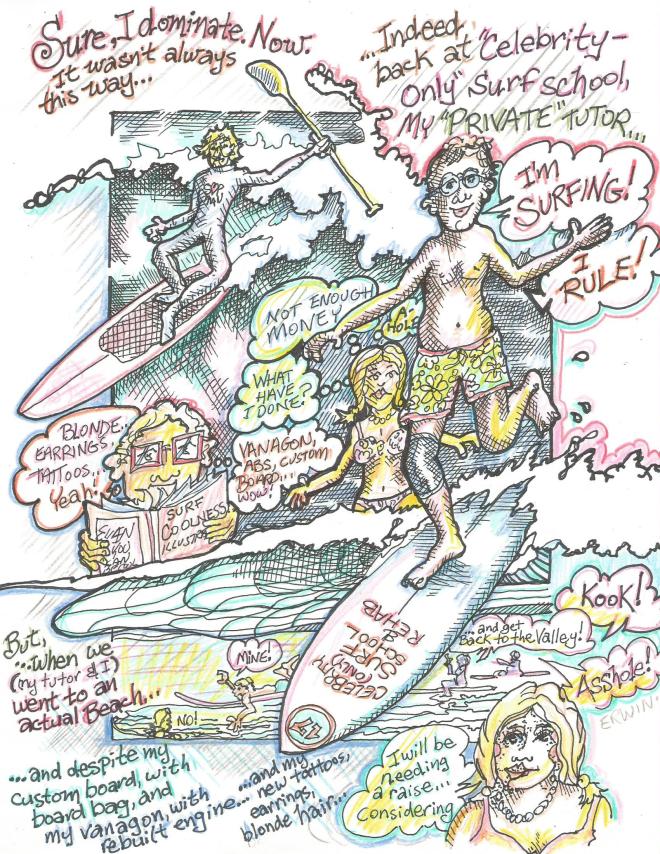 Sure, I dominate. Now.
It wasn't always
this way...
...Indeed,
back at "Celebrity-
only" Surf school,
My "PRIVATE" TUTOR...
I'M
SURFING!
I
RULE!
NOT ENOUGH
MONEY
A-
HOLE
WHAT
HAVE
I DONE?
BLONDE,
EARRINGS,
TATTOOS...
Yeah!
VANAGON,
ABS, CUSTOM
BOARD...
WOW!
EVEN
YOU
CAN
SURF
COOLNESS
CELEBRITY
(ONLY)
SURF
SCHOOL
&
REHAB
KOOK!
...and get
back to the Valley!
Asshole!
ERWIN.
MINE!
NO!
But,
...when we
(my tutor & I)
went to an
actual Beach...
...and despite my
custom board, with
board bag, and
my vanagon, with
rebuilt engine...
...and my
new tattoos,
earrings,
blonde hair...
I will be
needing
a raise...
Considering